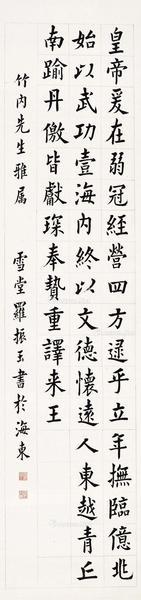 皇帝爰在弱冠經營四方逯乎立年撫臨億兆
始以武功壹海內終以文德懷遠人東越青丘
南踰丹儌皆獻琛奉贄重譯来王
竹內先生雅屬
雪堂羅振玉書於海東